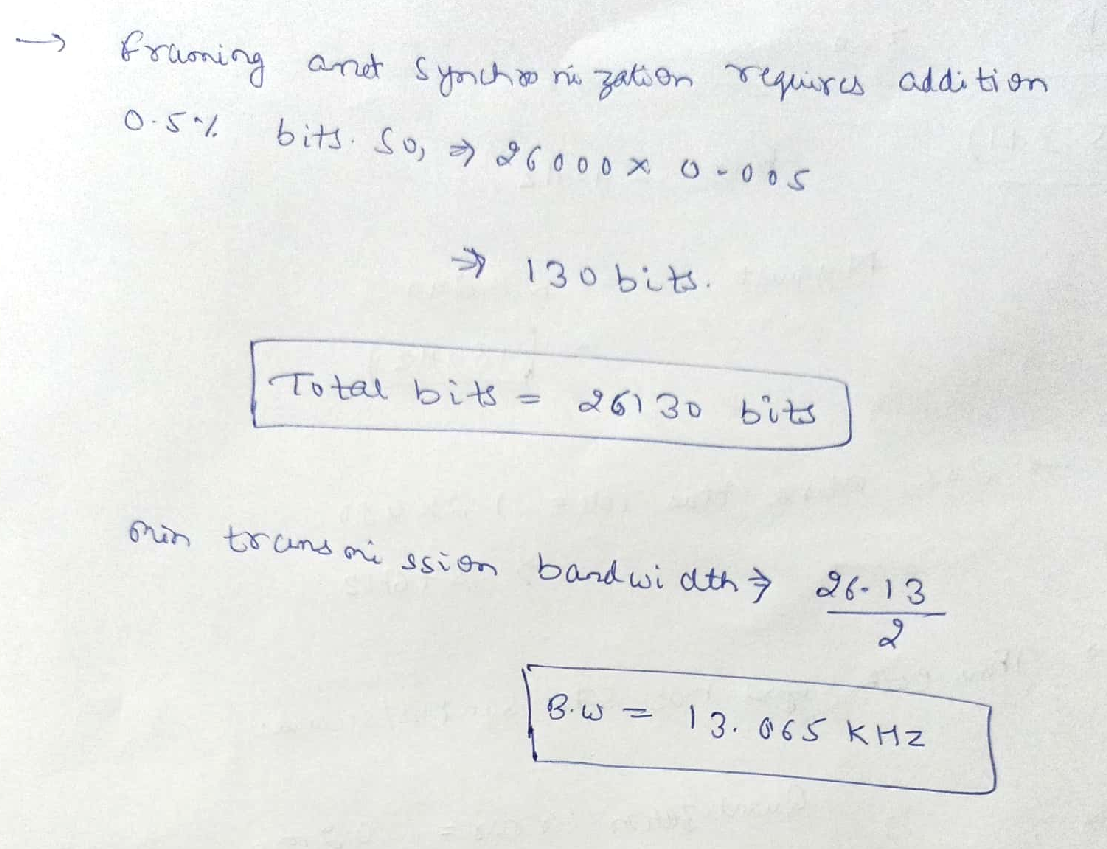 → framing and synchronization requires addition
0.5% bits. So, ⇒ 26000 x 0.005
⇒ 130 bits.
Total bits = 26130 bits
min transmission bandwidth ⇒ 26.13
2
B.W = 13.065 KHz